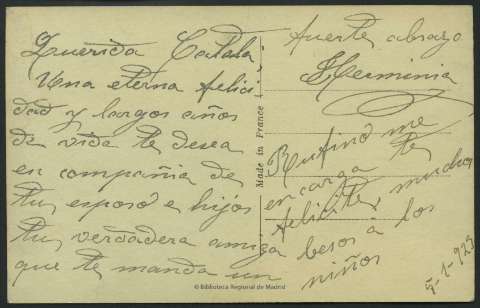 Querida Catala;
Una eterna felici
dad y largos años
de vida te desea
en compañia de
tu esposo e hijos
tu verdadera amiga
que te manda un
fuerte abrazo
Herminia
Rufino me
encarga te
felicite, muchos
besos a los
niños
5-1-923
Made in France
© Biblioteca Regional de Madrid